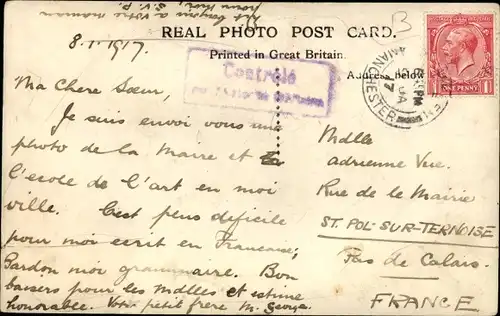 REAL PHOTO POST CARD.
Printed in Great Britain.
Address below
8.1.1917.
Contrôlé
MANCHESTER
ONE PENNY
Ma Chere Sœur,
Je suis envoi vous une
photo de la Maire et la
l'ecole de l'art en moi
ville. C'est plus dificile
pour moi ecrit en Francaise;
Pardon moi grammaire. Bon
baisers pour les Mdlles et estime
honorable. Votre petit frere M. George.
Mdlle
adrienne Vue.
Rue de la Mairie
ST. POL-SUR-TERNOISE
Pas de Calais.
FRANCE